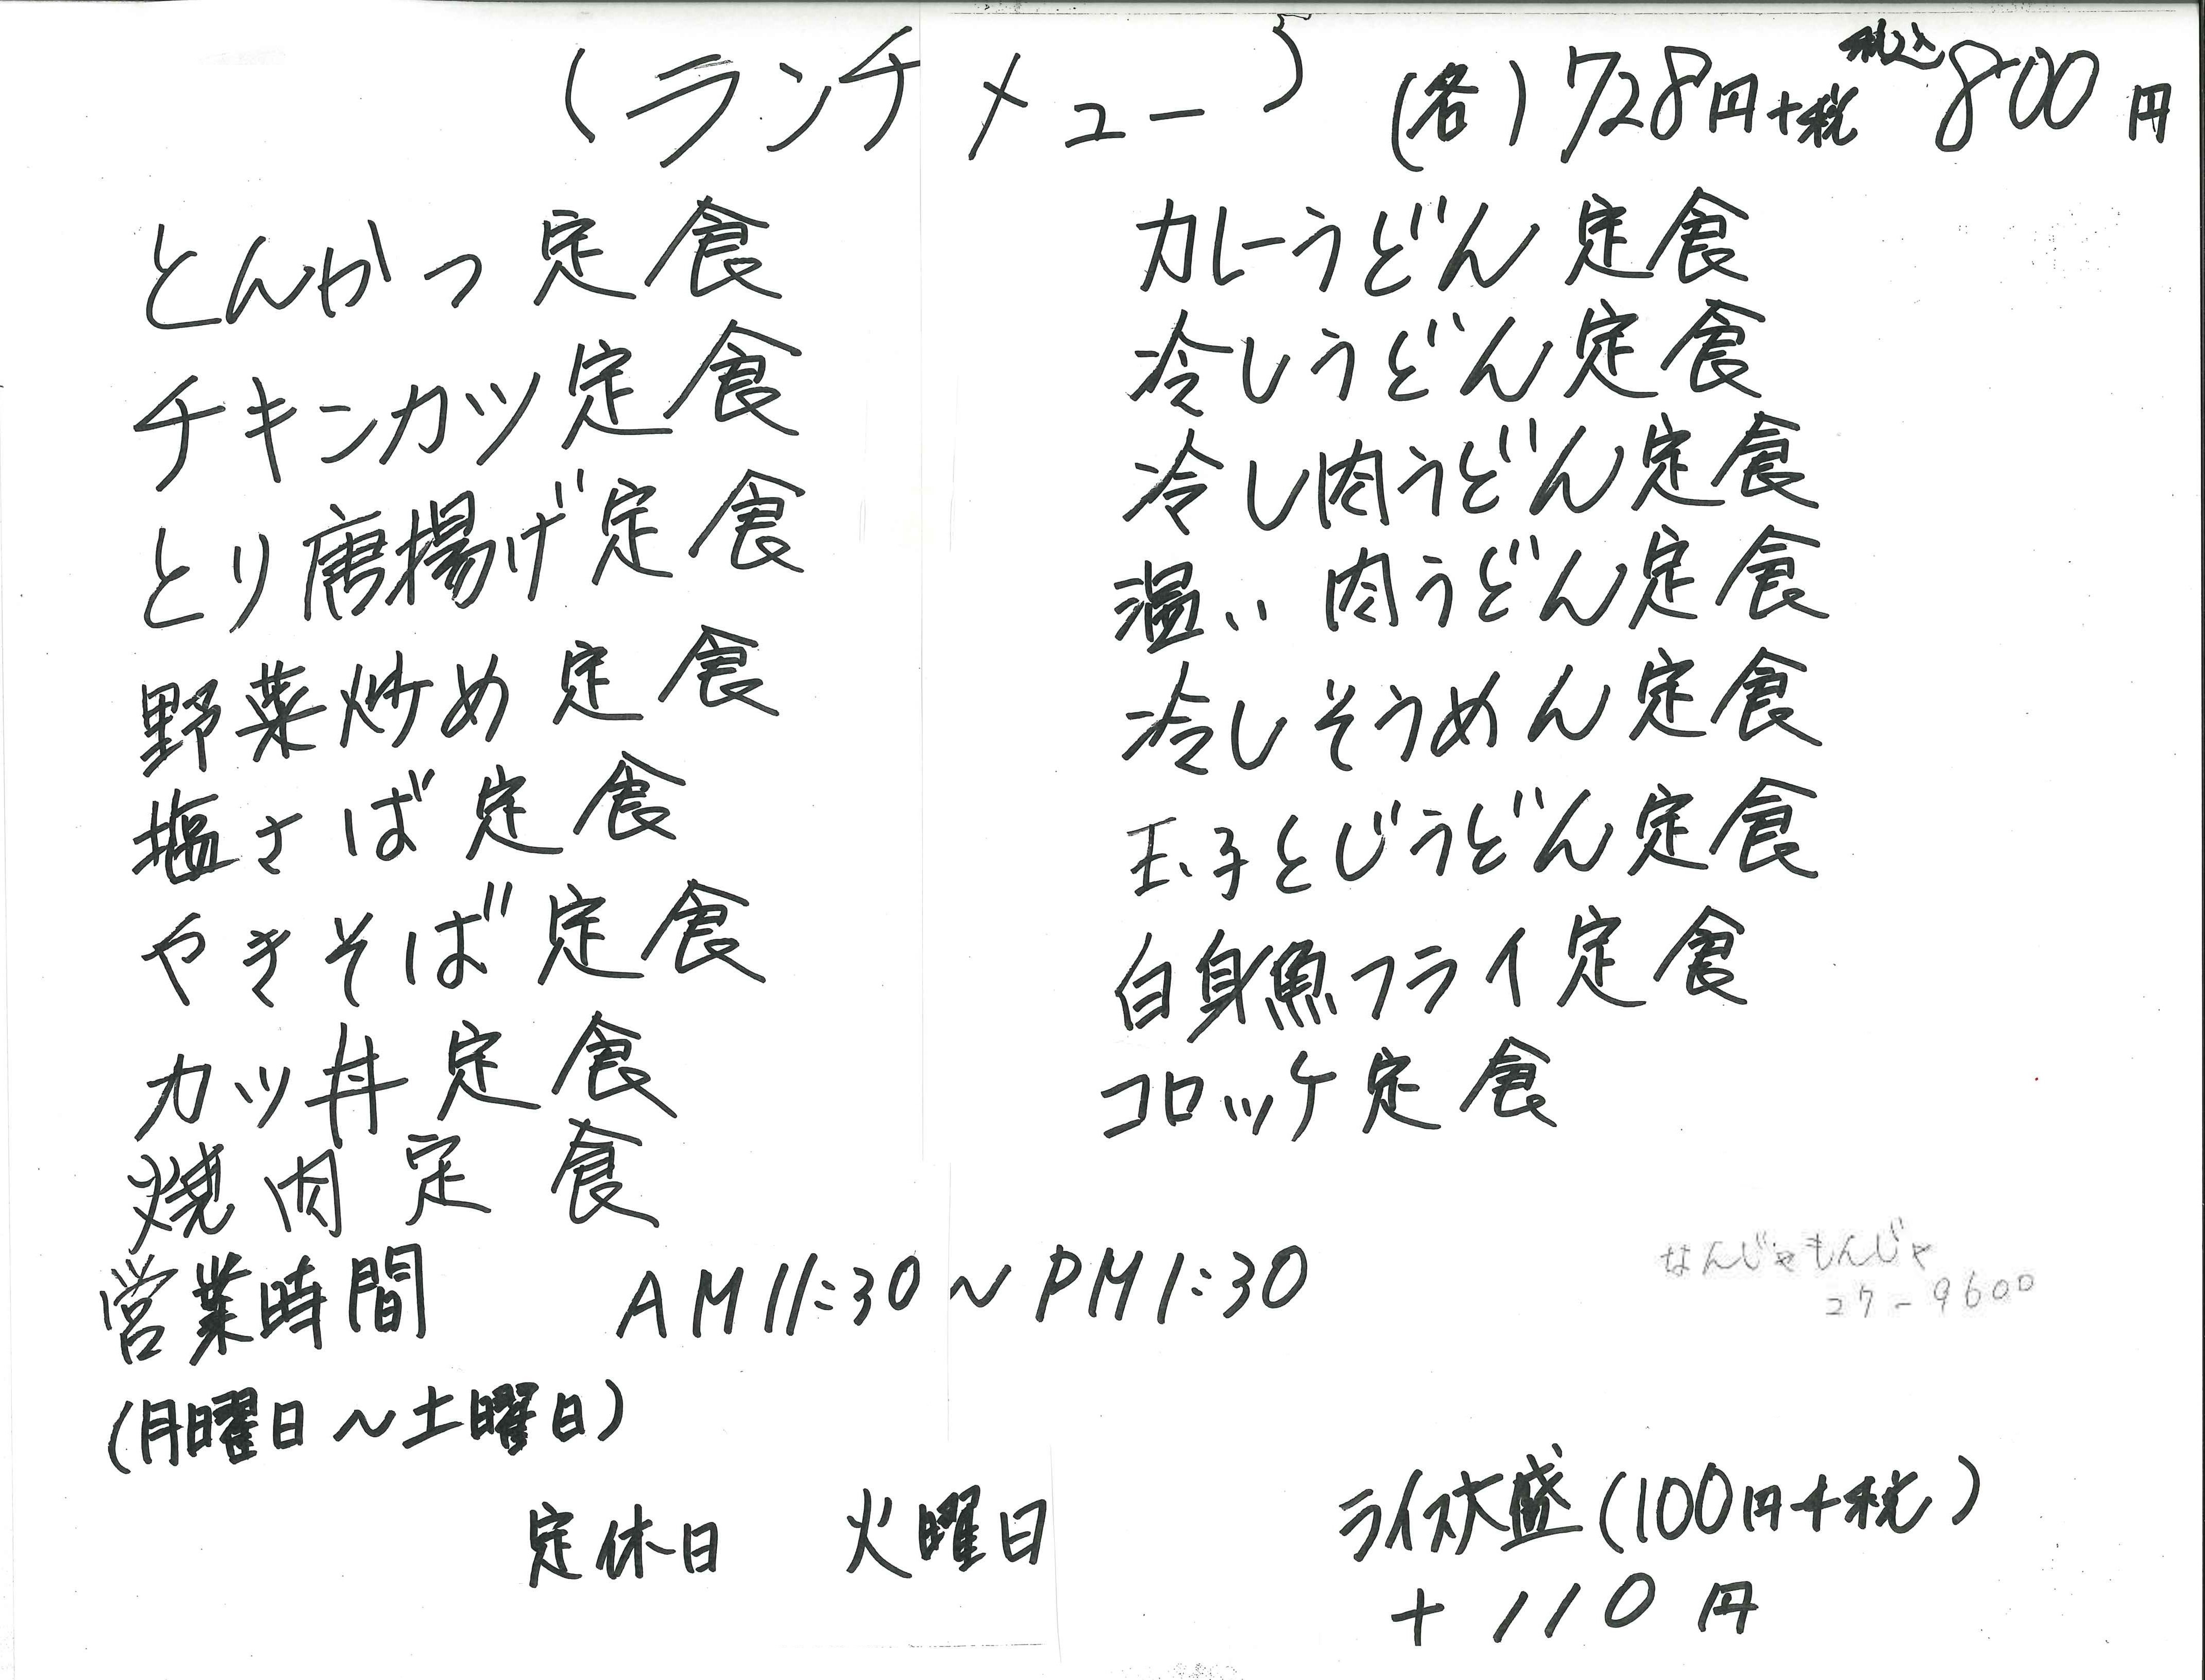 (ランチメュー) (各)728円+税 税込800円
とんかつ定食
チキンカツ定食
とり唐揚げ定食
野菜炒め定食
塩さば定食
やきそば定食
カツ丼定食
焼肉定食
カレーうどん定食
冷しうどん定食
冷し肉うどん定食
温い肉うどん定食
冷しそうめん定食
玉子とじうどん定食
白身魚フライ定食
コロッケ定食
営業時間 AM11:30~PM1:30
(月曜日~土曜日)
定休日 火曜日
なんじゃもんじゃ
27-9600
ライス大盛(100円+税)
+110円